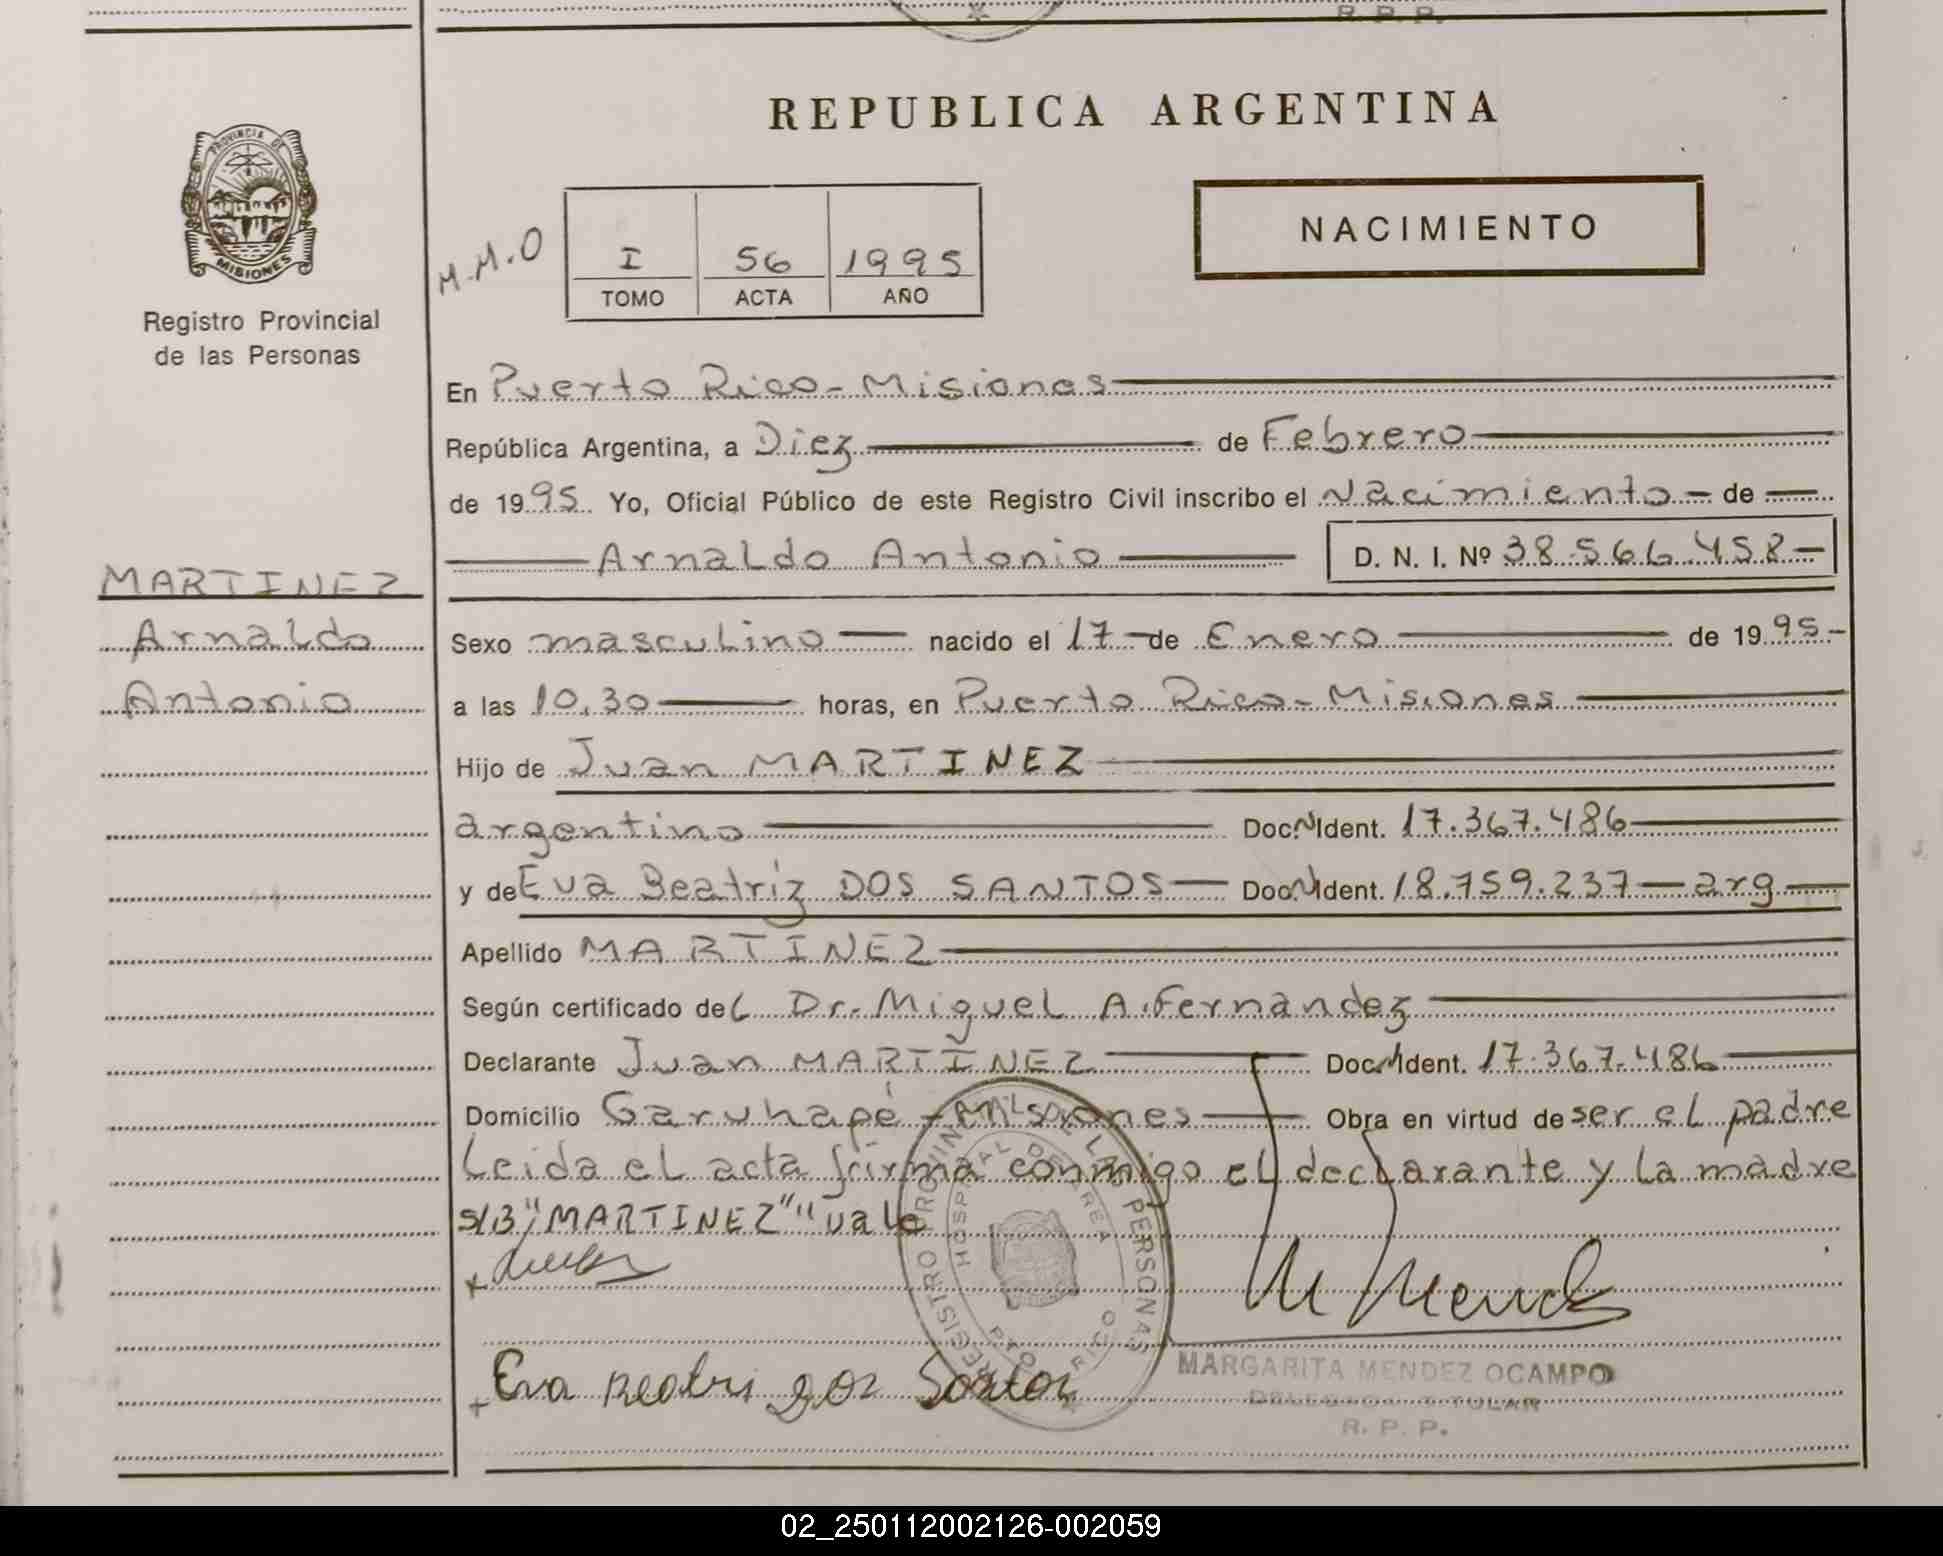 R. P. P.
REPUBLICA ARGENTINA
PROVINCIA DE
MISIONES
NACIMIENTO
M.M.O
I 56 1995
TOMO ACTA AÑO
Registro Provincial
de las Personas
En Puerto Rico - Misiones
República Argentina, a Diez de Febrero
de 1995. Yo, Oficial Público de este Registro Civil inscribo el Nacimiento - de
Arnaldo Antonio D. N. I. Nº 38.566.458 -
MARTINEZ
Arnaldo
Antonio
Sexo masculino nacido el 17 - de Enero de 1995 -
a las 10,30 horas, en Puerto Rico - Misiones
Hijo de Juan MARTINEZ
argentino Doc.N Ident. 17.367.486
y de Eva Beatriz DOS SANTOS Doc.N Ident. 18.759.237 - arg
Apellido MARTINEZ
Según certificado del Dr. Miguel A. Fernandez
Declarante Juan MARTINEZ Doc.N Ident. 17.367.486
Domicilio Garuhapé - Misiones Obra en virtud de ser el padre
Leida el acta firma conmigo el declarante y la madre
s/B "MARTINEZ" "vale
REGISTRO PROVINCIAL DE LAS PERSONAS
HOSPITAL DE AREA
PTO. RICO
M Mendez
Eva Beatris dos Santos
MARGARITA MENDEZ OCAMPO
DELEGADO TITULAR
R. P. P.
02_250112002126-002059